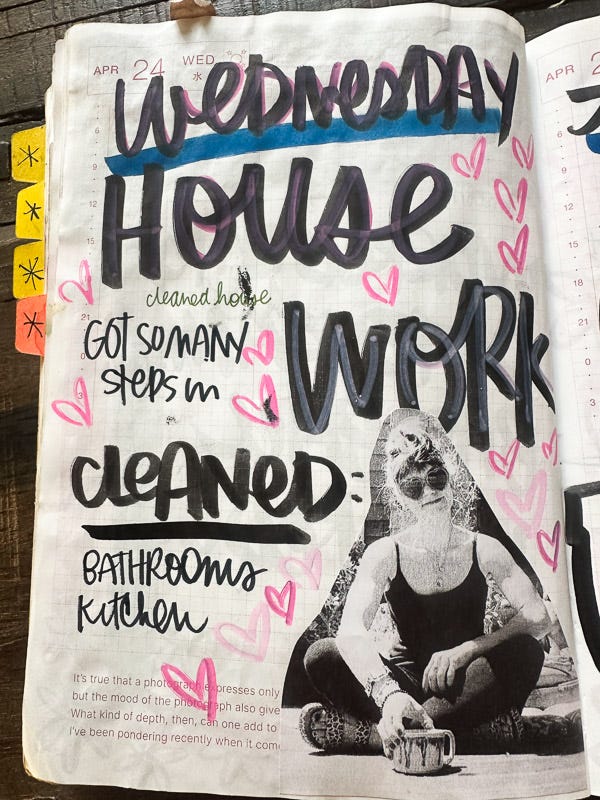 APR 24 WED
水
WEDNESDAY
HOUSE
cleaned house
WORK
GOT SO MANY
steps in
cleaned:
BATHROOMS
Kitchen
It's true that a photograph expresses only
but the mood of the photograph also give
What kind of depth, then, can one add to
I've been pondering recently when it com
APR 2
6
9
12
15
21
0
3
6
9
12
15
18
21
0
3